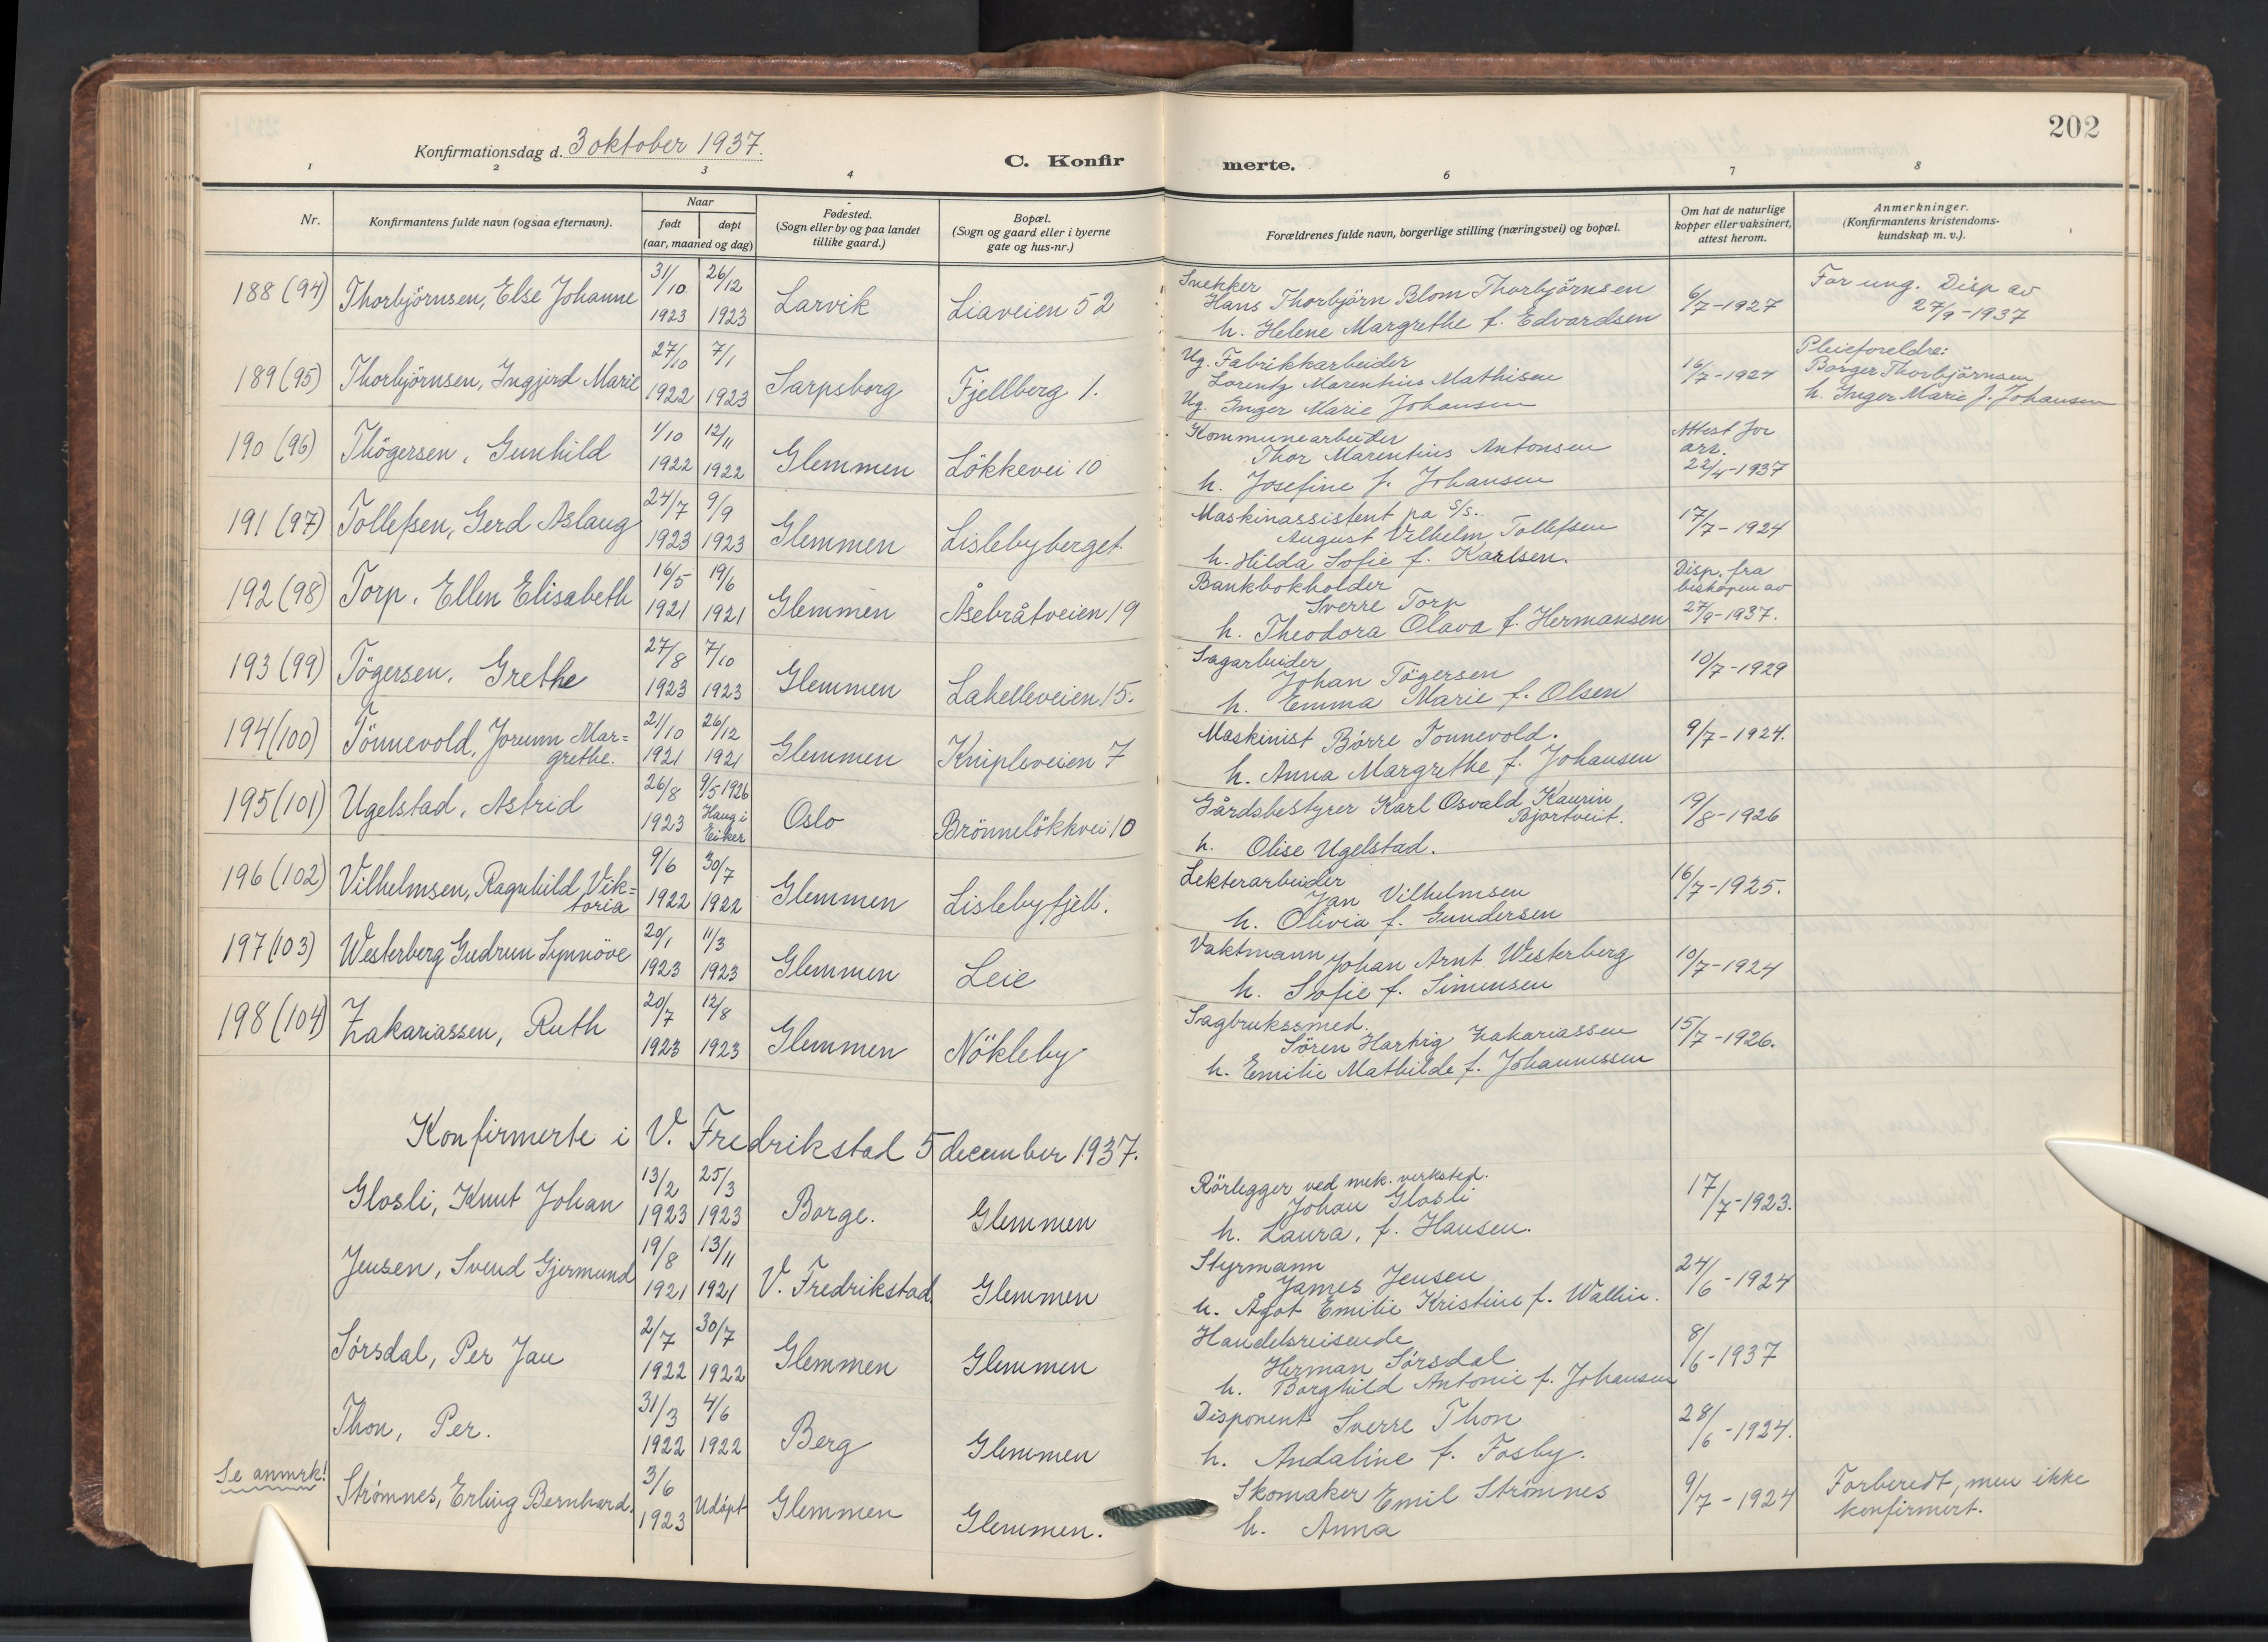 202
Konfirmationsdag d. 3 oktober 1937.
C. Konfirmerte.
1 2 3 4 6 7 8
Nr.
Konfirmantens fulde navn (ogsaa efternavn).
Naar
født døpt
(aar, maaned og dag)
Fødested.
(Sogn eller by og paa landet
tillike gaard.)
Bopæl.
(Sogn og gaard eller i byerne
gate og hus-nr.)
Forældrenes fulde navn, borgerlige stilling (næringsvei) og bopæl.
Om hat de naturlige
kopper eller vaksinert,
attest herom.
Anmerkninger.
(Konfirmantens kristendoms-
kundskap m. v.).
188 (94) Thorbjörnsen, Else Johanne 31/10 1923 26/12 1923 Larvik Liaveien 52
Snekker
Hans Thorbjörn Blom Thorbjörnsen
h. Helene Margrethe f. Edvardsen
6/7-1927
For ung. Disp av
27/9-1937
189 (95) Thorbjörnsen, Ingjerd Marie 27/10 1922 7/1 1923 Sarpsborg Fjellberg 1.
Ug. Fabrikkarbeider
Lorentz Marentius Mathisen
Ug. Inger Marie Johansen
16/7-1924
Pleieforeldre:
Borger Thorbjörnsen
h. Inger Marie f. Johansen
190 (96) Thögersen, Gunhild 1/10 1922 12/11 1922 Glemmen Lökkevei 10
Kommunearbeider
Thor Marentius Antonsen
h. Josefine f. Johansen
Attest for
arr.
22/4-1937
191 (97) Tollefsen, Gerd Aslaug 24/7 1923 9/9 1923 Glemmen Lislebyberget.
Maskinassistent pa S/S..
August Vilhelm Tollefsen
h. Hilda Sofie f. Karlsen.
17/7-1924
192 (98) Torp, Ellen Elisabeth 16/5 1921 19/6 1921 Glemmen Åsebråtveien 19
Bankbokholder
Sverre Torp
h. Theodora Olava f. Hermansen
Disp. fra
biskopen av
27/9-1937.
193 (99) Tögersen, Grethe 27/8 1923 7/10 1923 Glemmen Lahelleveien 15.
Sagarbeider
Johan Tögersen
h. Emma Marie f. Olsen
10/7-1929
194 (100) Tönnevold, Jorunn Mar=
grethe. 21/10 1921 26/12 1921 Glemmen Knipleveien 7
Maskinist Börre Tonnevold.
h. Anna Margrethe f. Johansen
9/7-1924.
195 (101) Ugelstad, Astrid 26/8 1923 9/5 1926 Haug i Eiker Oslo Brönnelökkvei 10
Gårdsbestyrer Karl Osvald Kaurin
Bjortveit.
h. Olise Ugelstad.
19/8-1926
196 (102) Vilhelmsen, Ragnhild Vik=
toria 9/6 1922 30/7 1922 Glemmen Lislebyfjell.
Lekterarbeider
Jan Vilhelmsen
h. Olivia f. Gundersen
16/7-1925.
197 (103) Westerberg Gudrun Synnöve 20/1 1923 11/3 1923 Glemmen Leie
Vaktmann Johan Arnt Westerberg
h. Sofie f. Simensen
10/7-1924
198 (104) Zakariassen, Ruth 20/7 1923 12/8 1923 Glemmen Nökleby
Sagbrukssmed.
Sören Hartvig Zakariassen
h. Emilie Mathilde f. Johannessen
15/7-1926.
Konfirmerte i V. Fredrikstad 5 december 1937.
Glosli, Knut Johan 13/2 1923 25/3 1923 Borge. Glemmen
Rörlegger ved mek. verksted.
Johan Glosli
h. Laura, f. Hansen.
17/7-1923.
Jensen, Svend Gjermund 19/8 1921 13/11 1921 V. Fredrikstad. Glemmen
Styrmann
James Jensen
h. Ågot Emilie Kristine f. Wallin.
24/6-1924
Sörsdal, Per Jan 2/7 1922 30/7 1922 Glemmen Glemmen
Handelsreisende
Herman Sörsdal
h. Borghild Antonie f. Johansen
8/6-1937
Thon, Per. 31/3 1922 4/6 1922 Berg Glemmen
Disponent Sverre Thon
h. Andaline f. Fosby.
28/6-1924.
Se anmrk! Strömnes, Erling Bernhard. 3/6 1923 Udöpt Glemmen Glemmen.
Skomaker Emil Strömnes
h. Anna
9/7-1924
Forberedt, men ikke
konfirmert.